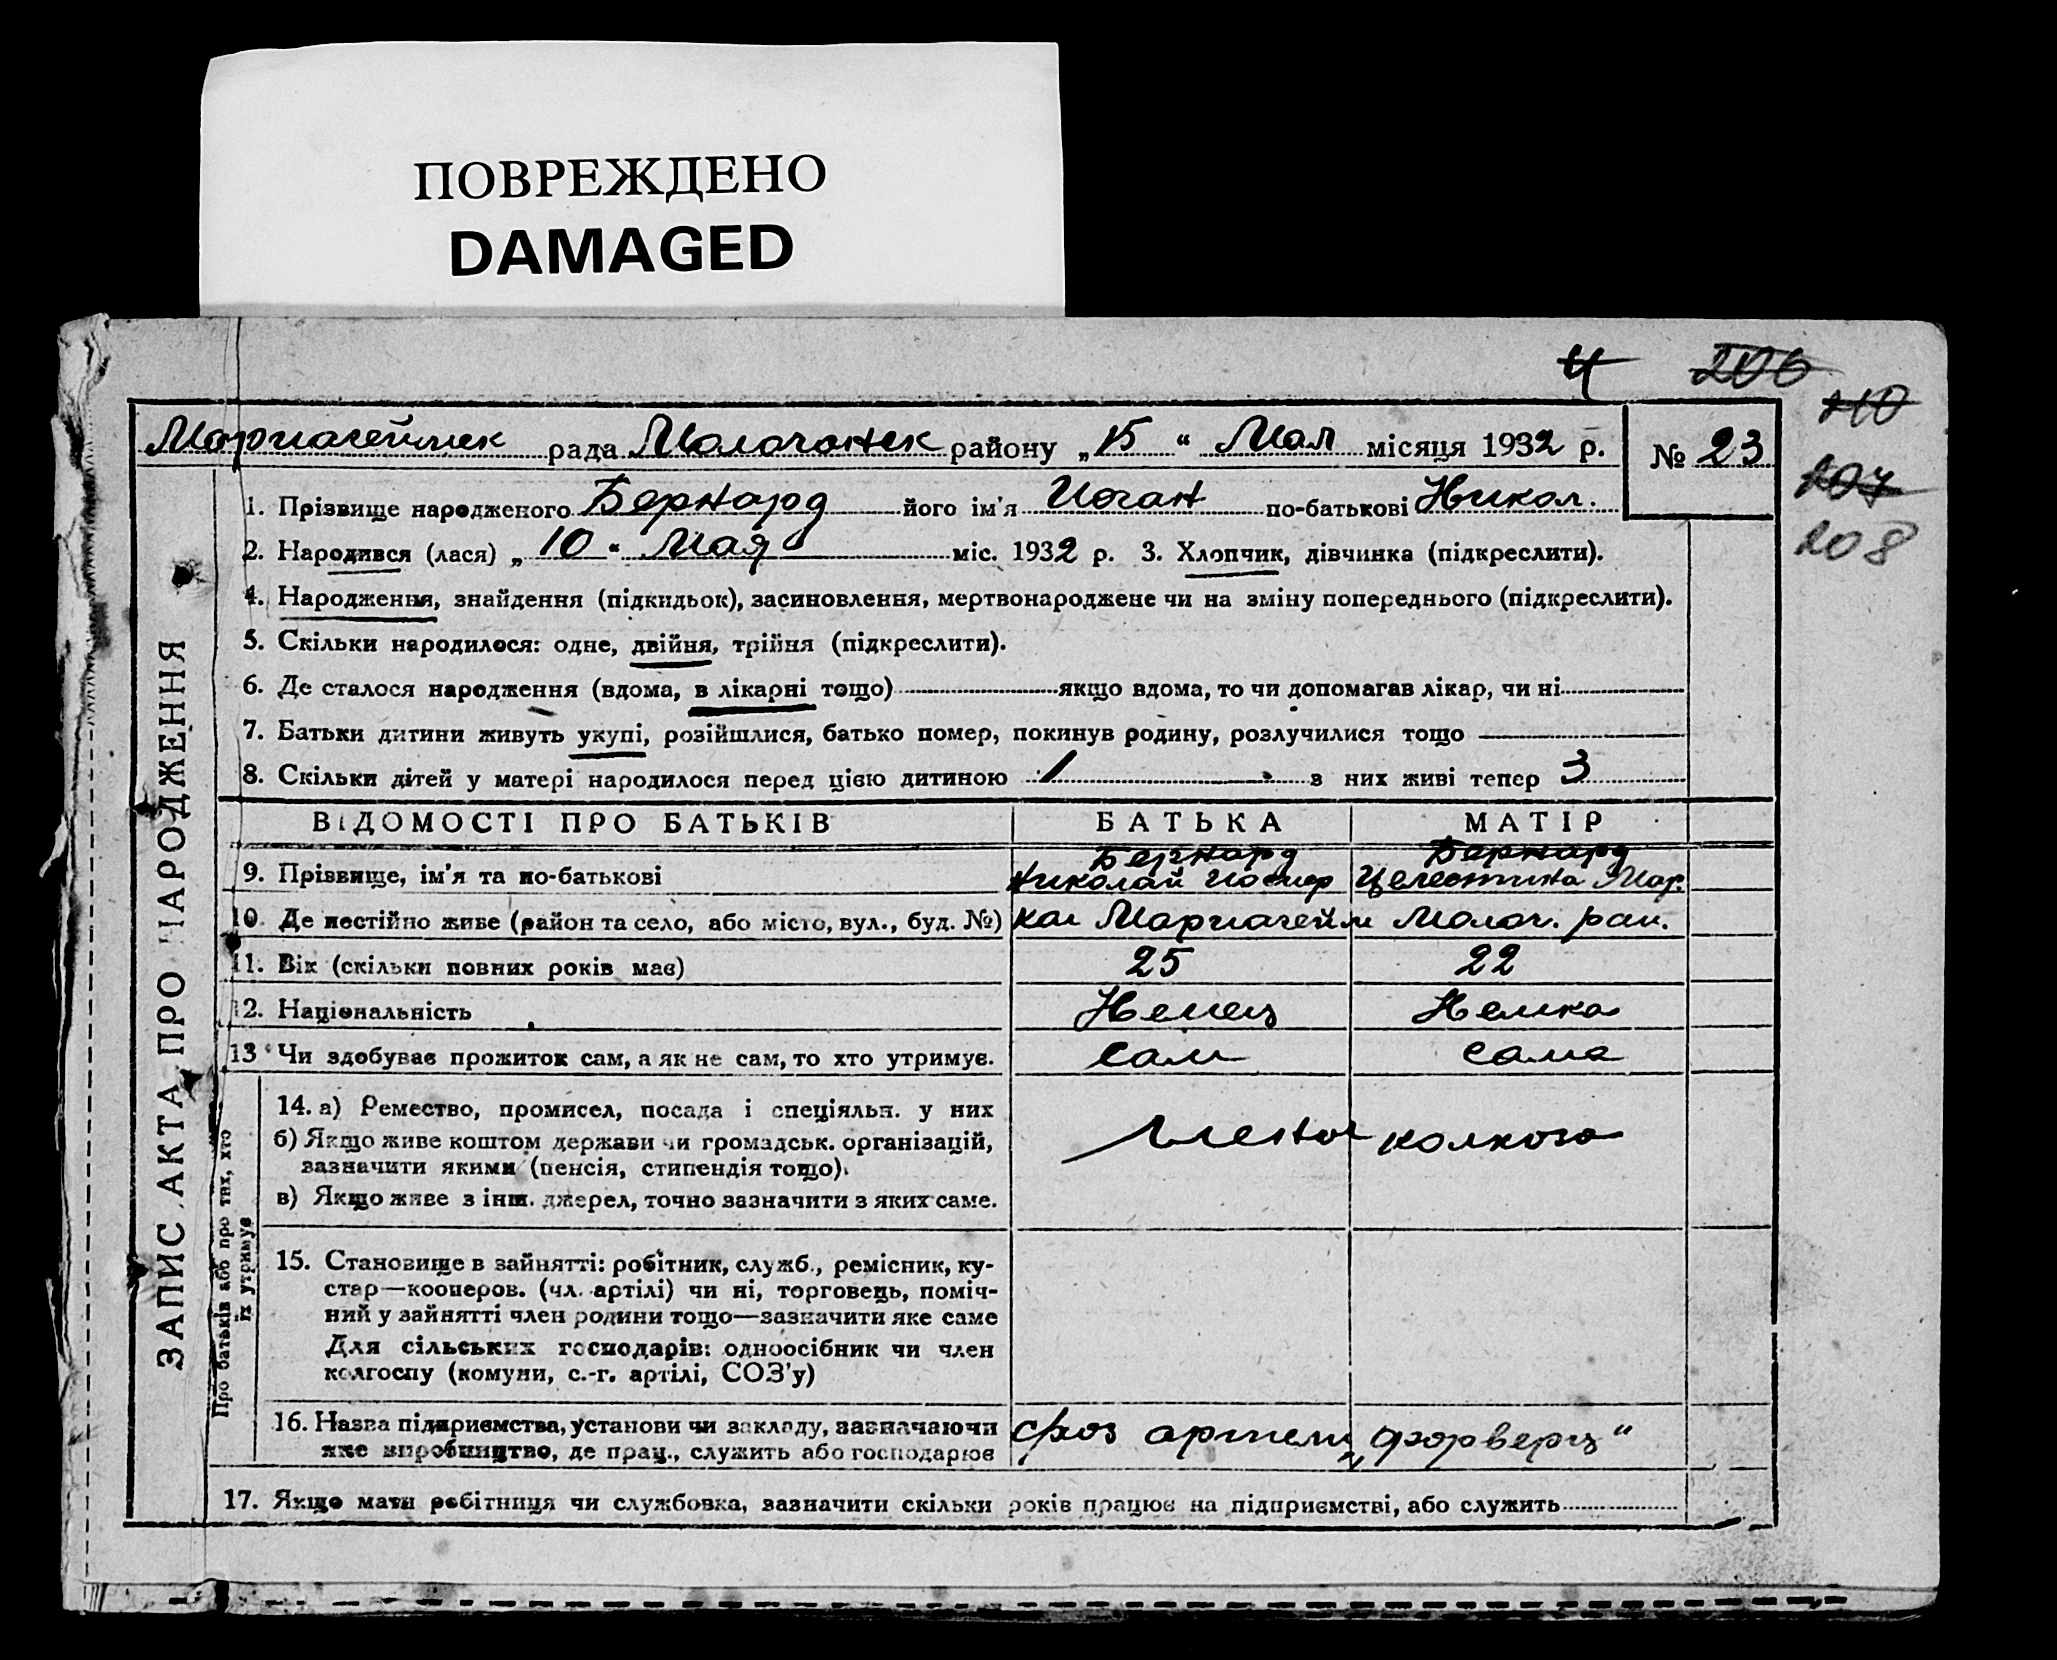 ПОВРЕЖДЕНО
DAMAGED
4 206
210
Мариагеймск рада Молочанск району „15“ Мая місяця 1932 р. № 23
207
208
1. Прізвище народженого Бернард його ім'я Иоган по-батькові Никол.
2. Народився (лася) „10“ Мая міс. 1932 р. 3. Хлопчик, дівчинка (підкреслити).
4. Народження, знайдення (підкидьок), засиновлення, мертвонароджене чи на зміну попереднього (підкреслити).
5. Скільки народилося: одне, двійня, трійня (підкреслити).
6. Де сталося народження (вдома, в лікарні тощо) якщо вдома, то чи допомагав лікар, чи ні
7. Батьки дитини живуть укупі, розійшлися, батько помер, покинув родину, розлучилися тощо
8. Скільки дітей у матері народилося перед цією дитиною 1 з них живі тепер 3
ЗАПИС АКТА ПРО НАРОДЖЕННЯ
ВІДОМОСТІ ПРО БАТЬКІВ БАТЬКА МАТІР
Бернард Бернард
9. Прізвище, ім'я та по-батькові Николай Иосиф Целестина Мар.
10. Де постійно живе (район та село, або місто, вул., буд. №) кол Мариагейм Молоч. рай.
11. Вік (скільки повних років має) 25 22
12. Національність Немец Немка
13. Чи здобуває прожиток сам, а як не сам, то хто утримує. сам сама
Про батьків або про тих, хто
їх утримує
14. а) Ремество, промисел, посада і спеціяльн. у них
б) Якщо живе коштом держави чи громадськ. організацій, члены колхоза
зазначити якими (пенсія, стипендія тощо).
в) Якщо живе з інш. джерел, точно зазначити з яких саме.
15. Становище в зайнятті: робітник, служб., ремісник, ку-
стар—кооперов. (чл. артілі) чи ні, торговець, поміч-
ний у зайнятті член родини тощо—зазначити яке саме
Для сільських господарів: одноосібник чи член
колгоспу (комуни, с.-г. артілі, СОЗ'у)
16. Назва підприємства, установи чи закладу, зазначаючи артели „Форверц“
яке виробництво, де прац., служить або господарює
17. Якщо мати робітниця чи службовка, зазначити скільки років працює на підприємстві, або служить